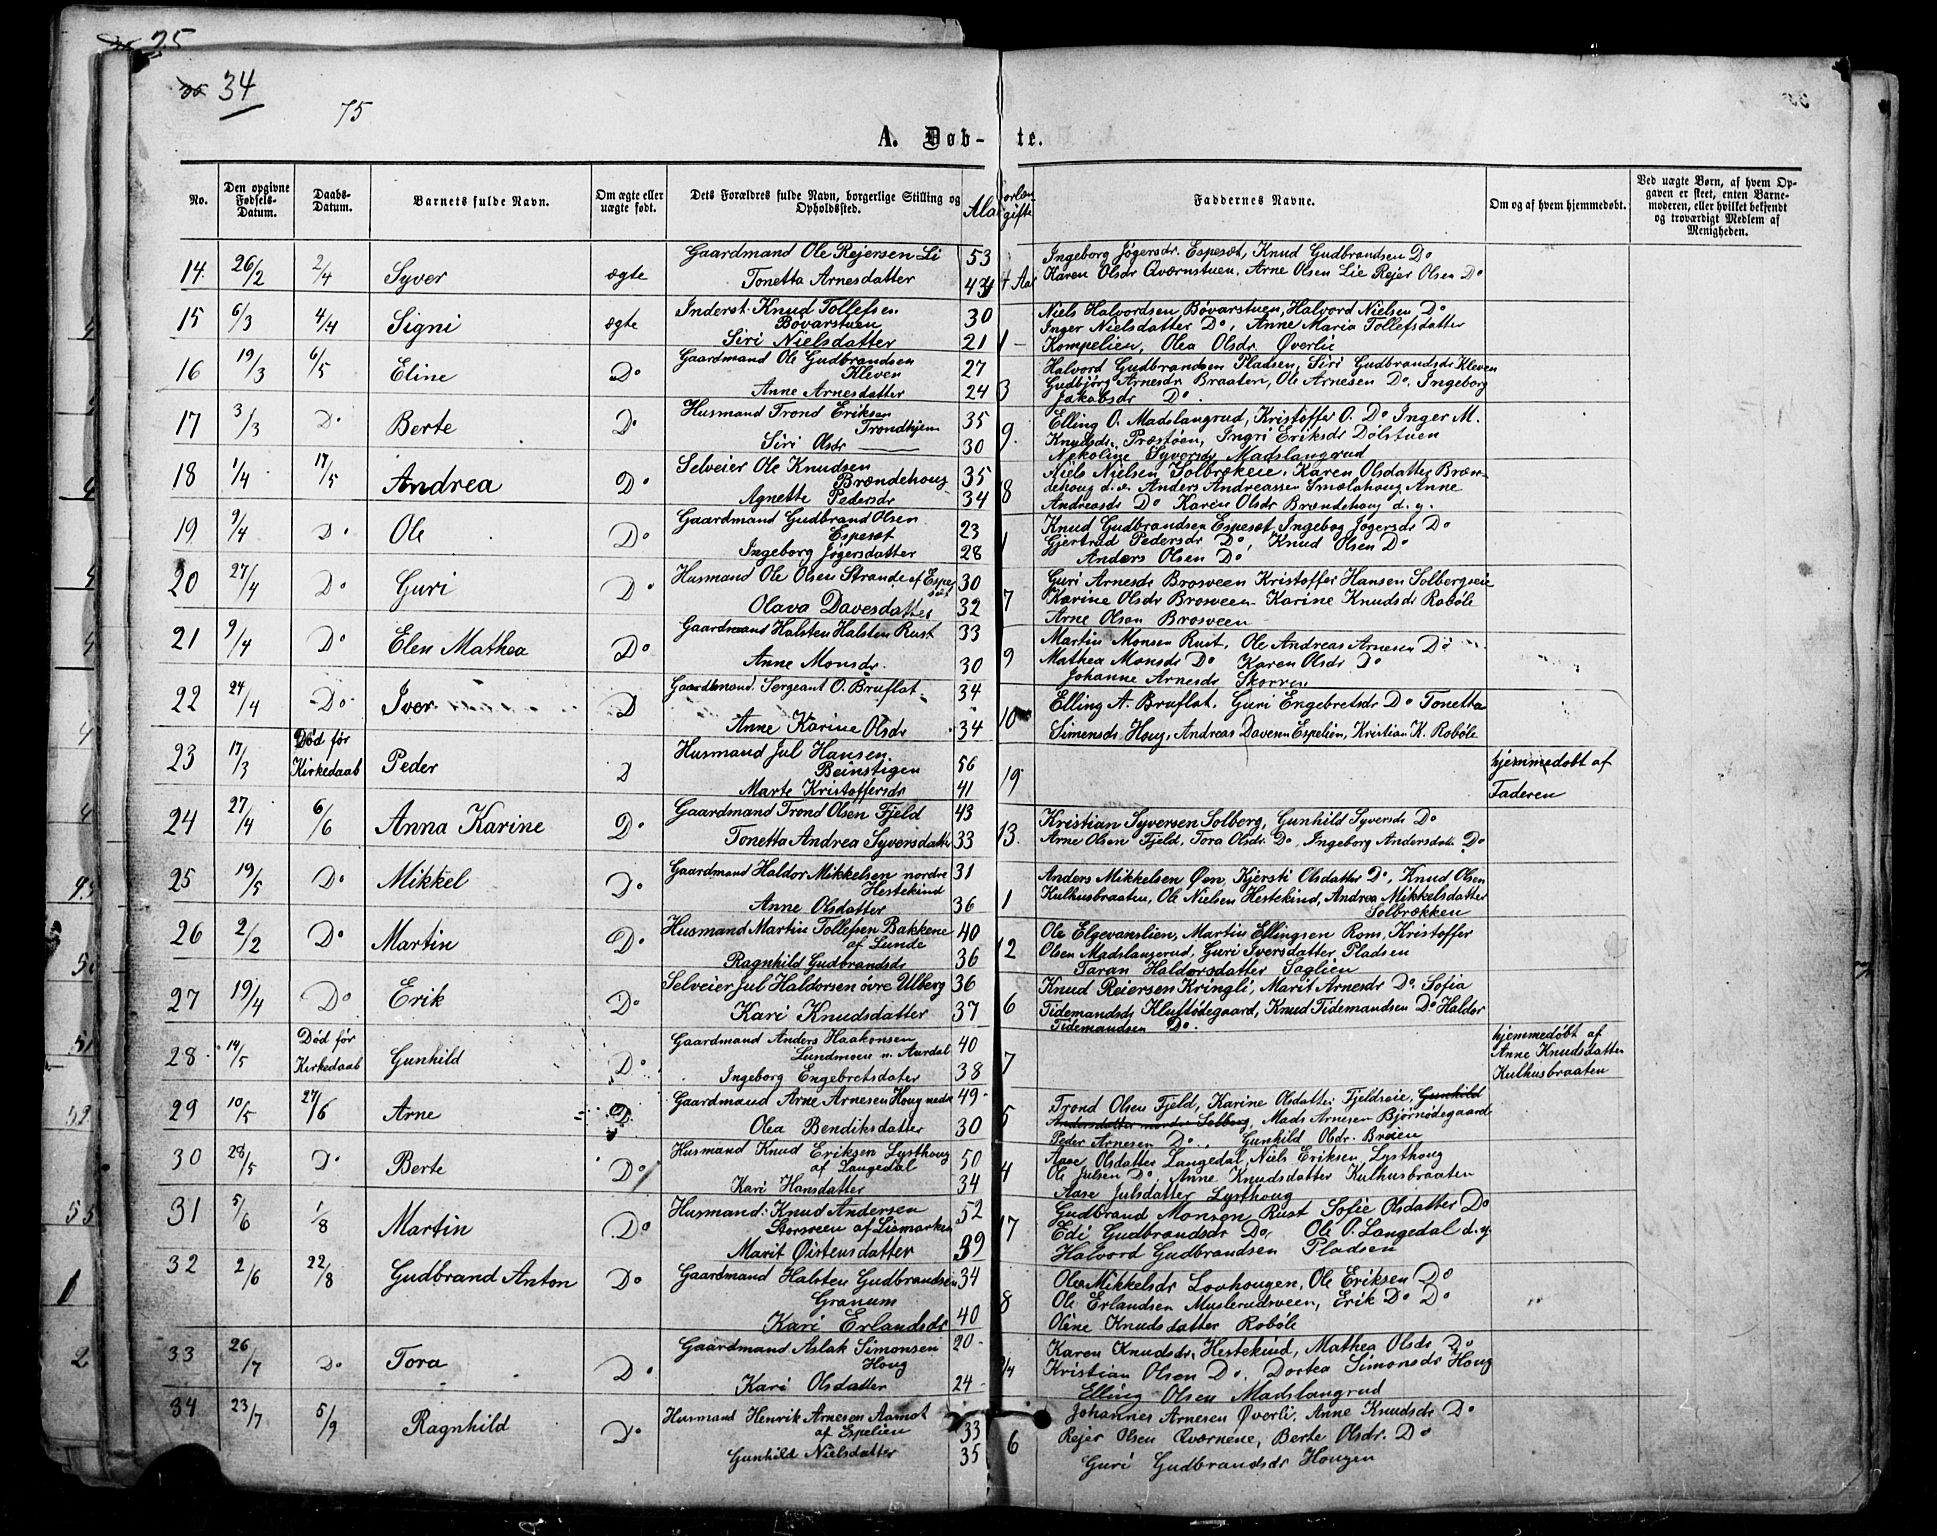 25
34
75
A. Døb- te.
No.
Den opgivne Fødsels-Datum.
Daabs-Datum.
Barnets fulde Navn.
Om ægte eller uægte født.
Dets Forældres fulde Navn, borgerlige Stilling og Opholdssted.
Faddernes Navne.
Om og af hvem hjemmedøbt.
Ved uægte Børn, af hvem Opgaven er skeet, enten Barnemoderen, eller hvilket bekjendt og troværdigt Medlem af Menigheden.
14 26/2 2/4 Syver ægte Gaardmand Ole Rejersen Li 53 Ingeborg Jøgersdr. Espesæt, Knud Gudbrandsen Do
Tonetta Arnesdatter 43 Karen Olsdr Qværnstuen, Arne Olsen Lie Rejer Olsen Do
15 6/3 4/4 Signi ægte Inderst Knud Tollefsen 30 Niels Halvordsen Bøvarstuen, Halvord Nielsen Do
Bøvarstuen Inger Nielsdatter Do, Anne Maria Tollefsdatter
Siri Nielsdatter 21 1 Kompelien, Olea Olsdr. Øverlie
16 19/3 6/5 Eline Do Gaardmand Ole Gudbrandsen 27 Halvord Gudbrandsen Pladsen, Siri Gudbrandsdr Kleven
Kleven 3 Gudbjørg Arnesdr Braaten, Ole Arnesen Do, Ingeborg
Anne Arnesdatter 24 Jakobsdr Do.
17 3/3 Do Berte Do Husmand Trond Eriksen 35 Elling O. Madslangrud, Kristoffer O. Do Inger M.
Trondhjem 9. Knudsdr. Præstøen, Ingri Eriksdr Dølstuen
Siri Olsdr 30 Nekoline Syversdr Madslangrud
18 1/4 17/5 Andrea Do Selveier Ole Knudsen 35 Niels Nielsen Solbrækeie. Karen Olsdatter Bræn-
Brændehoug 8 dehoug d.æ. Anders Andreassen Smælahoug Anne
Agnette Pedersdr 34 Andreasdr Do Karen Olsdr Brændehoug d. y.
19 9/4 Do Ole Do Gaardmand Gudbrand Olsen 23 Knud Gudbrandsen Espesæt Ingebog Jøgersdr Do
Espesæt 1 Gjertrud Pedersdr Do, Knud Olsen Do
Ingeborg Jøgersdatter 28 Anders Olsen Do
20 27/4 Do Guri Do Husmand Ole Olsen Strande af Espesæt 30 Guri Arnesdr Brosveen Kristoffer Hansen Solbergseie
7 Karine Olsdr Brosveen Karine Knudsdr Robøle
Olava Davesdatter 32 Arne Olsen Brosveen
21 9/4 Do Elen Mathea Do Gaardmand Halsten Halsten Rust 33 Martin Monsen Rust, Ole Andreas Arnesen Do
9 Mathea Monsdr Do Karen Olsdr Do
Anne Monsdr. 30 Johanne Arnesdr Skorren
22 24/4 Do Iver D Gaardmand. Sergeant O. Bruflat 34 Elling A. Bruflat, Guri Engebretsdr Do Tonetta
Anne Karine Olsdr 34 10 Simensdr Houg, Andreas Davesen Espelien, Kristian K. Robøle
23 17/3 Død før Kirkedaab Peder D Husmand Jul Hansen 56 hjemmedøbt af
Beinstigen 19
Marte Kristoffersdr 41 Faderen
24 27/4 6/6 Anna Karine Do Gaardmand Trond Olsen Fjeld 43 Kristian Syversen Solberg, Gunhild Syversdr Do
Tonetta Andrea Syversdatter 33 13. Arne Olsen Fjeld, Tora Olsdr. Do, Ingeborg Andersdatt. Do
25 19/5 Do Mikkel Do Gaardmand Haldor Mikkelsen nordre 31 Anders Mikkelsen Øen, Kjersti Olsdatter Do, Knud Olsen
Hestekind Kulhusbraaten, Ole Nielsen Hestekind, Andrea Mikkelsdatter
Anne Olsdatter 36 1 Solbrækken
26 2/2 Do Martin Do Husmand Martin Tollefsen Bakkene 40 Ole Elgevanslien, Martin Ellingsen Rom, Kristoffer
af Lunde 12 Olsen Madslangerud, Guri Iversdatter Pladsen
Ragnhild Gudbrandsdr 36 Taran Haldorsdatter Saglien
27 19/4 Do Erik Do Selveier Jul Haldorsen øvre Ulberg 36 Knud Reiersen Kringli, Marit Arnesdr Do, Sofia
Kari Knudsdatter 37 6 Tidemandsdr Kluftødegaard, Knud Tidemandsen Do Haldor
Tidemandsen Do.
28 14/5 Død før Kirkedaab Gunhild Do Gaardmand Anders Haakonsen 40 hjemmedøbt af
Lundmoen n. Aurdal 7 Anne Knudsdatter
Ingeborg Engebretsdater 38 Kulhusbraaten
29 10/5 27/6 Arne Do Gaardmand Arne Arnesen Houg nedre 49 Trond Olsen Fjeld, Karine Olsdatter Fjeldseie, Gunhild
5 Andersdatter nordre Solberg, Mads Arnesen Bjørnødegaard
Olea Bendiksdatter 30 Peder Arnesen Do, Gunhild Olsdr. Brøien
30 28/5 Do Berte Do Husmand Knud Eriksen Lysthoug 50 Aase Olsdatter Langedal, Niels Eriksen Lysthoug
af Langedal 4 Ole Julsen Do, Anne Knudsdatter Kulhusbraaten
Kari Hansdatter 34 Aase Julsdatter Lysthoug
31 5/6 1/8 Martin Do Husmand: Knud Andersen 52 Gudbrand Monsen Rust Sofie Olsdatter Do
Storsveen af Lismarken 17 Edi Gudbrandsdr Do, Ole O. Langedal d.y.
Marit Øistensdatter 39 Halvord Gudbrandsen Pladsen
32 2/6 22/8 Gudbrand Anton Do Gaardmand Halsten Gudbrandsen 34 Olea Mikkelsdr Lovhougen, Ole Eriksen Do
Granum 8 Ole Erlandsen Muslerudsveen, Erik Do Do
Kari Erlandsdr 40 Oline Knudsdatter Robøle
33 26/7 Do Tora Do Gaardmand Aslak Simonsen 20 Karen Knudsdr. Hestekind, Mathea Olsdr Do
Houg 3/4 Kristian Olsen Do, Dortea Simonsdr Houg
Kari Olsdatter 24 Elling Olsen Madslangrud
34 23/7 5/9 Ragnhild Do Husmand Henrik Arnesen Aamot Johannes Arnesen Øverli, Anne Knudsdr Do
af Espelien 33 6 Rejer Olsen Qværnene, Berte Olsdr. Do
Gunhild Nielsdatter 35 Guri Gudbrandsdr Hougen